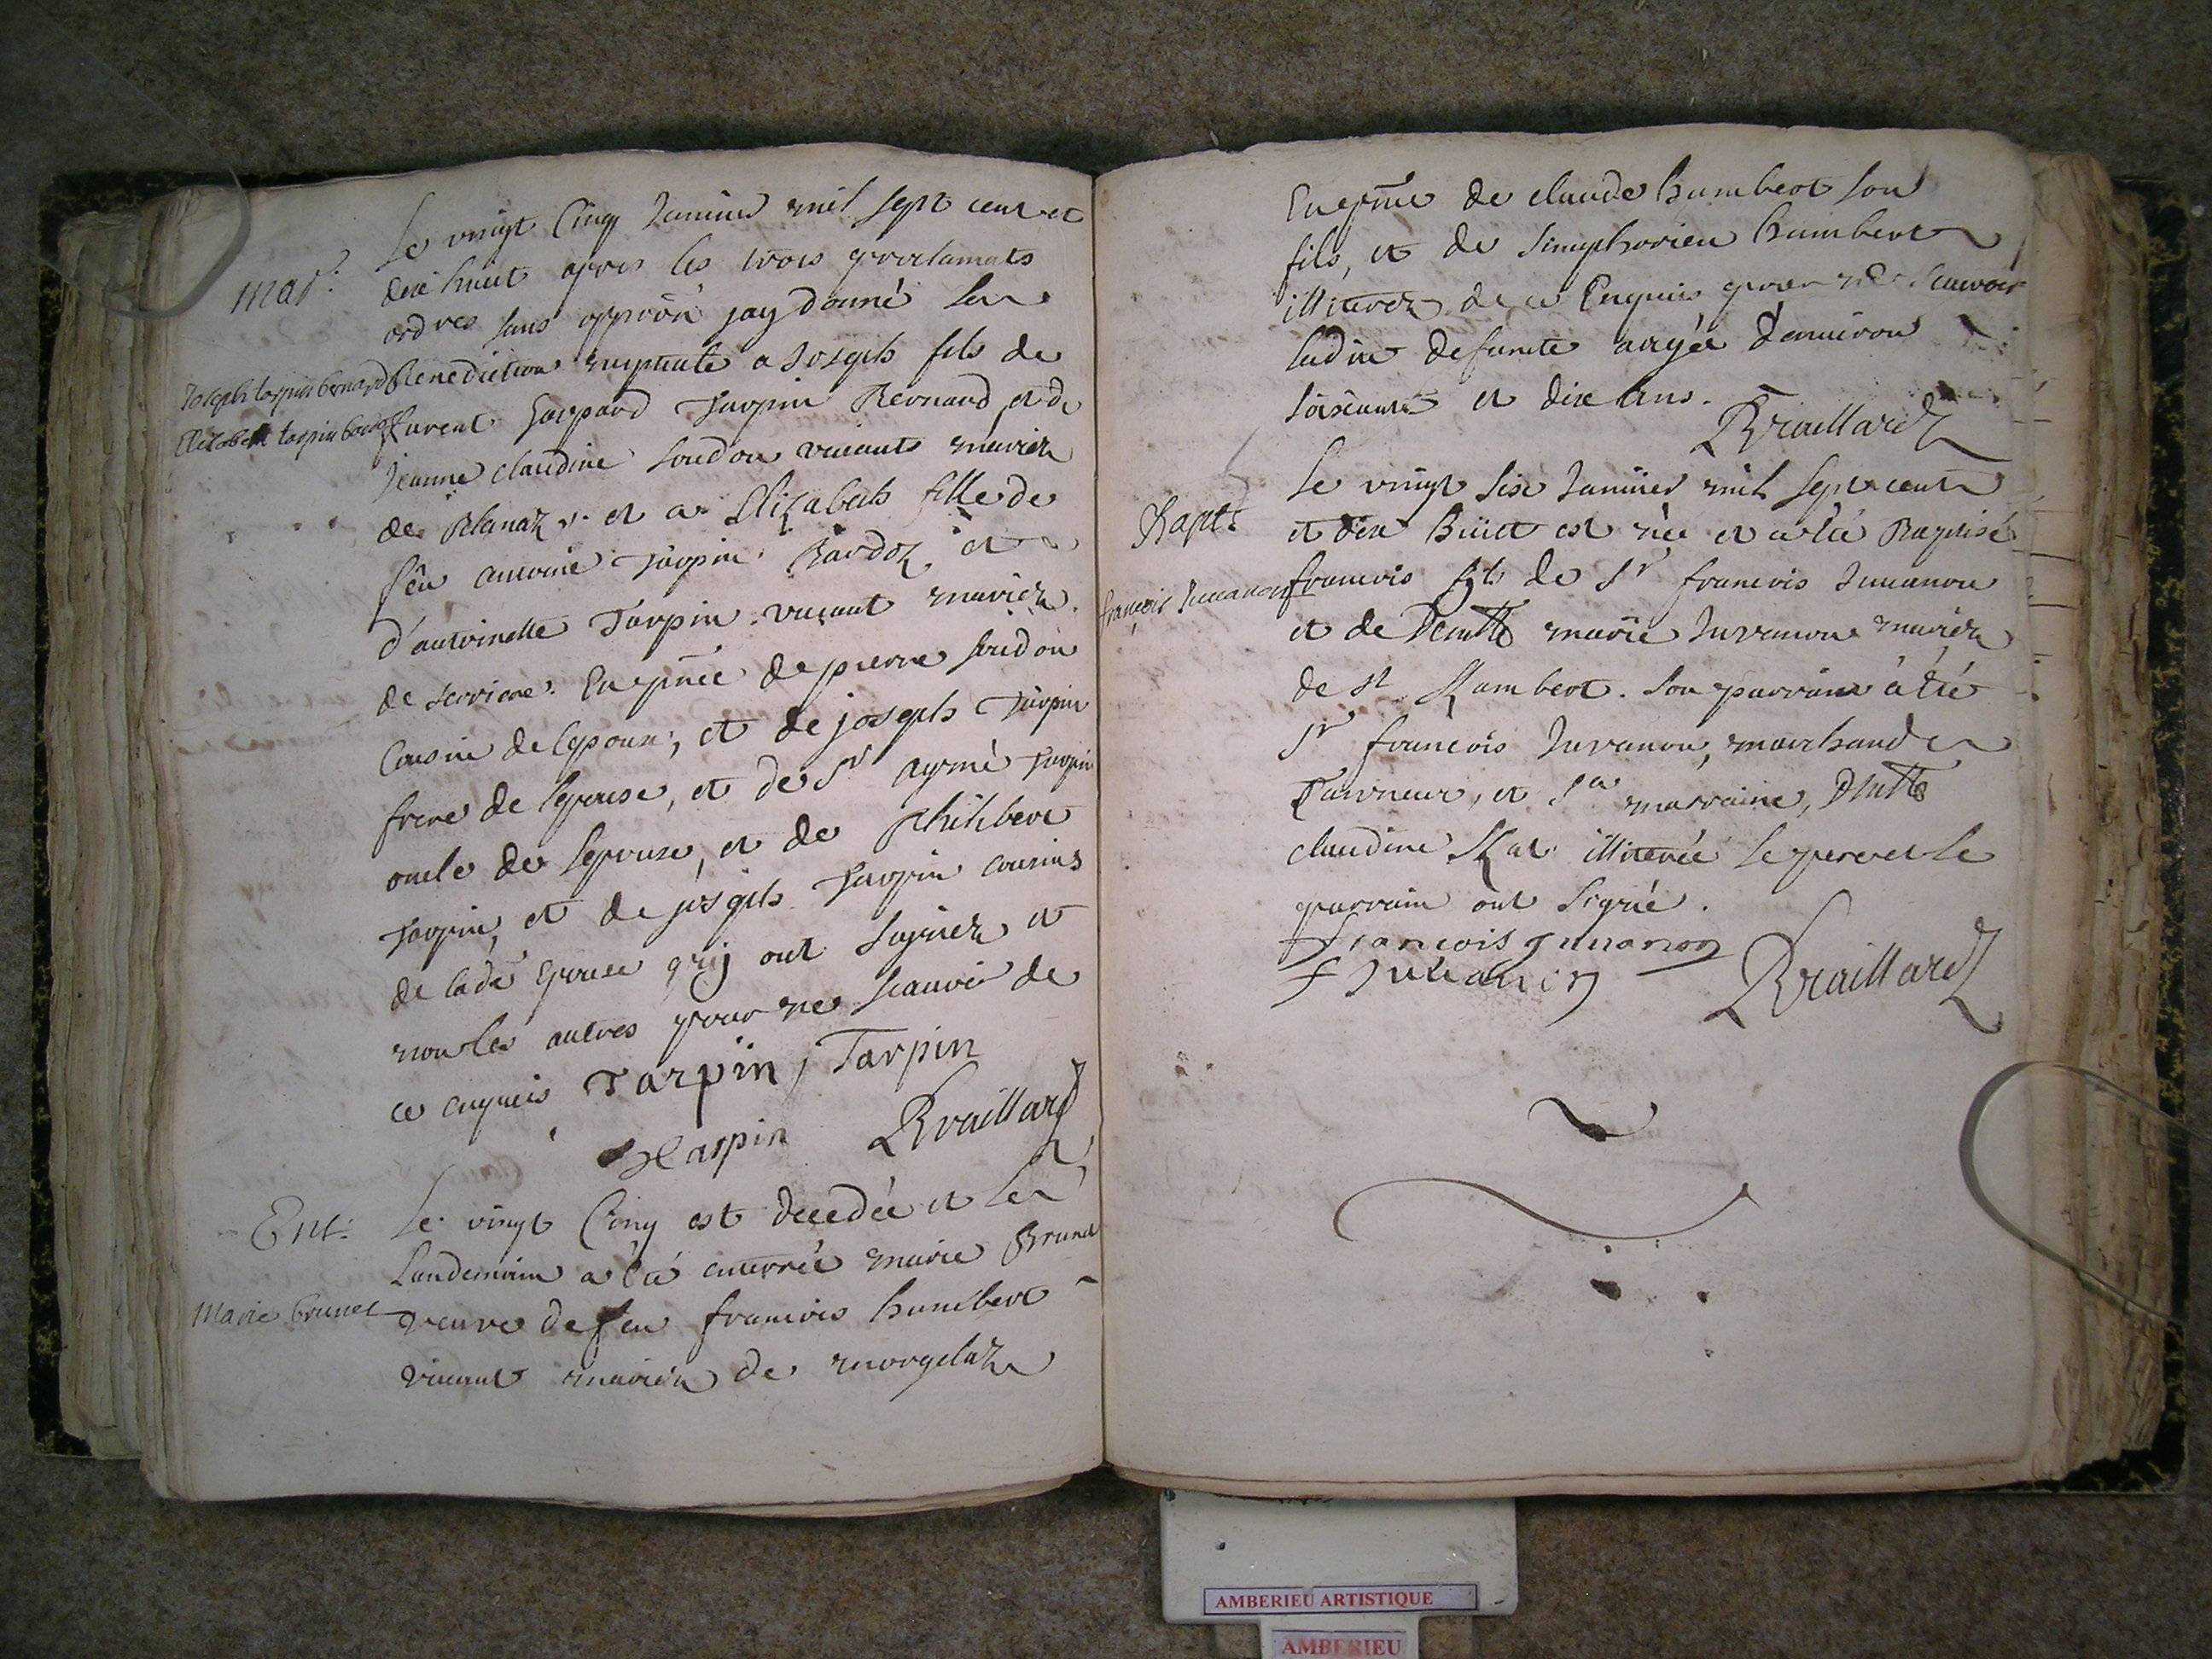 Mar:
Le vingt Cinq Janvier mil sept cent et
dix huit apres les trois proclamats
ordres sans oppoõn jay donné la
Joseph tarpin bernard
Benediction nuptiale a Joseph fils de
Elizabeth tarpin
furent Gaspard Tarpin Bernard, et de
Jeanne claudine soudon vivants mariez
de Blanaz. et a Elizabeth fille de
feu antoine Tarpin Bardoz et
d'antoinette Tarpin vivant mariez
de serriere. En pñce de pierre soudon
Cousin de lepoux, et de joseph Tarpin
frere de lepouse, et de Sr aymé Tarpin
oncle de lepouse, et de philibert
Tarpin, et de joseph Tarpin cousins
de ladte epouse quj ont signez et
non les autres pour ne scauoir de
ce enquis Tarpin j Tarpin
Tarpin Braillard
Ent:
Le vingt Cinq est decedée et le
Landemain a été enterrée marie Brunet
Marie brunet
veuve de feu francois humbert
vivant mariez de morgelaz
En pñce de claude humbert son
fils, et de simphorien humbert
illiterez de ce Enquis, pour ne scauoir
ladte defunte aagée d'enuiron
soixante et dix ans.
Braillard
Le vingt six Januier mil sept cent
Bapt:
et dix huict est née et a été Baptisé
françois Juuanon
francois fils de Sr francois Juuanon
et de Demlle marie Juvanon mariez
de St Rambert. Son parrain a été
Sr francois Juvanon, marchand
Tanneur, et Sa marraine, Dlle
claudine Rat illiterée le pere et le
parrain ont signé.
francois juuanon
f Juuanon Braillard
AMBERIEU ARTISTIQUE
AMBERIEU